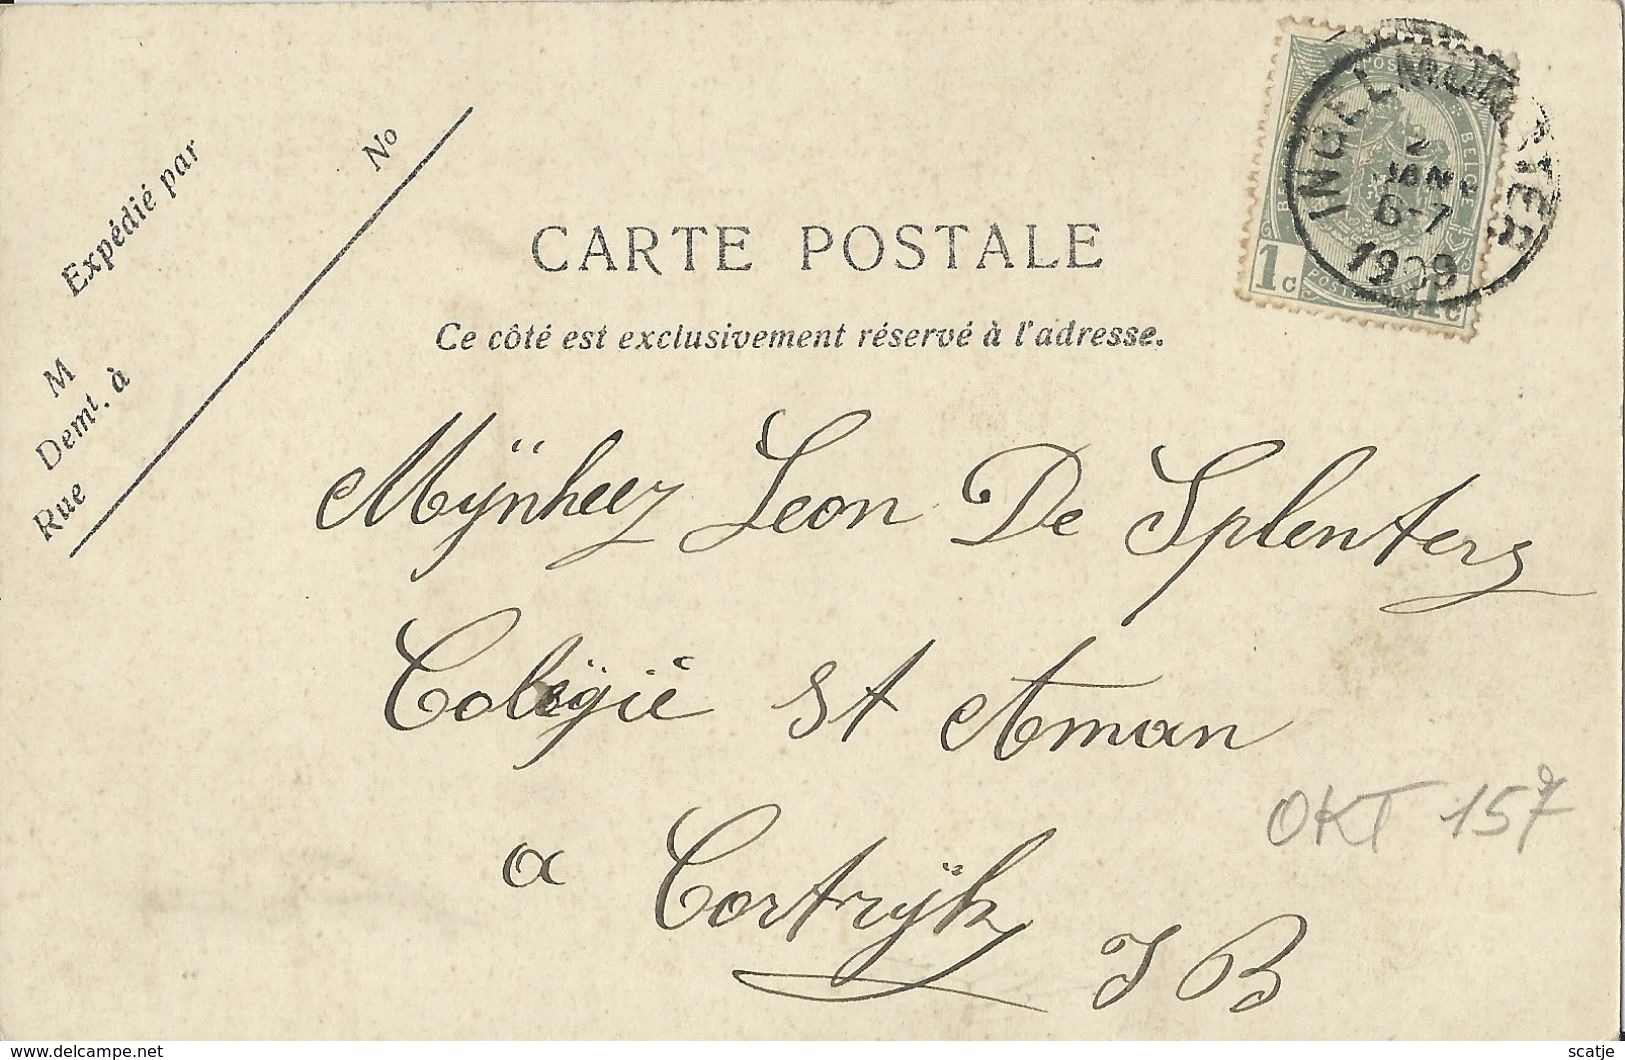 Expédié par
No
M
Demt. à
Rue
CARTE POSTALE
Ce côté est exclusivement réservé à l'adresse.
BELGE
1c 1c
INGELMUNSTER
2
JAN
6-7
1909
Mÿnheer Leon De Splenters
Colegie St Aman
a Cortrÿk
J B
OKT 157
delcampe.net
scatje